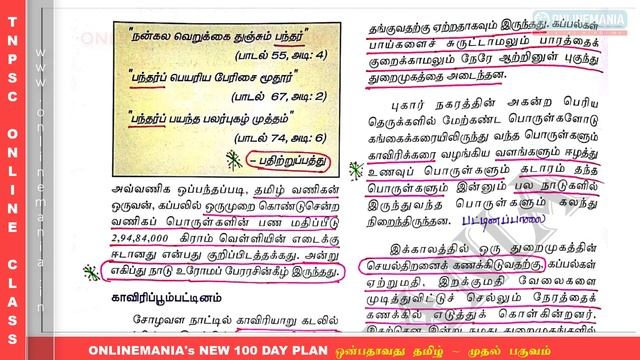 TNPSC ONLINE CLASS
www.onlinemania.in
"நன்கல வெறுக்கை துஞ்சும் பந்தர்"
(பாடல் 55, அடி: 4)
"பந்தர்ப் பெயரிய பேரிசை மூதூர்"
(பாடல் 67, அடி: 2)
"பந்தர்ப் பயந்த பலர்புகழ் முத்தம்"
(பாடல் 74, அடி: 6)
– பதிற்றுப்பத்து
அவ்வணிக ஒப்பந்தப்படி, தமிழ் வணிகன்
ஒருவன், கப்பலில் ஒருமுறை கொண்டுசென்ற
வணிகப் பொருள்களின் பண மதிப்பீடு
2,94,84,000 கிராம் வெள்ளியின் எடைக்கு
ஈடானது என்பது குறிப்பிடத்தக்கது. அன்று
எகிப்து நாடு உரோமப் பேரரசின்கீழ் இருந்தது.
காவிரிப்பூம்பட்டினம்
சோழவள நாட்டில் காவிரியாறு கடலில்
ONLINEMANIA
தங்குவதற்கு ஏற்றதாகவும் இருந்தது. கப்பல்கள்
பாய்களைச் சுருட்டாமலும் பாரத்தைக்
குறைக்காமலும் நேரே ஆற்றினுள் புகுந்து
துறைமுகத்தை அடைந்தன.
புகார் நகரத்தின் அகன்ற பெரிய
தெருக்களில் மேற்கண்ட பொருள்களோடு
கங்கைக்கரையிலிருந்து வந்த பொருள்களும்
காவிரிக்கரை வழங்கிய வளங்களும் ஈழத்து
உணவுப் பொருள்களும் கடாரம் தந்த
பொருள்களும் இன்னும் பல நாடுகளில்
இருந்துவந்த பொருள்களும் கலந்து
நிறைந்திருந்தன. பட்டினப்பாலை
இக்காலத்தில் ஒரு துறைமுகத்தின்
செயல்திறனைக் கணக்கிடுவதற்கு, கப்பல்கள்
ஏற்றுமதி, இறக்குமதி வேலைகளை
முடித்துவிட்டுச் செல்லும் நேரத்தைக்
கணக்கில் எடுத்துக் கொள்கின்றனர்.
ONLINEMANIA's NEW 100 DAY PLAN ஒன்பதாவது தமிழ் - முதல் பருவம்